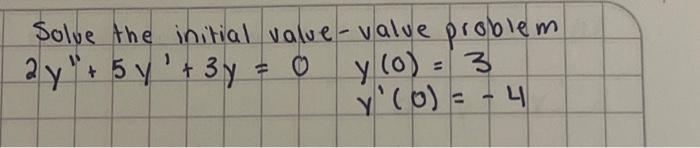 Solve the initial value-value problem
2y" + 5y' + 3y = 0 y(0) = 3
y'(0) = -4